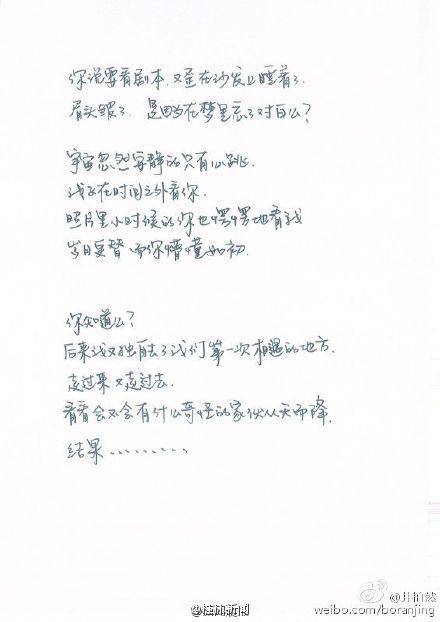 你说要看剧本，又歪在沙发上睡着了.
眉头皱了. 是因为在梦里忘了对白么？
宇宙忽然安静的只有心跳.
我站在时间之外看你.
照片里小时候的你也懵懵地看我
岁月更替 而你懵懂如初.
你知道么？
后来我又独自去了我们第一次相遇的地方.
走过来又走过去.
看看会不会有什么奇怪的家伙从天而降.
结果..........
@桂林新闻
@井柏然
weibo.com/boranjing